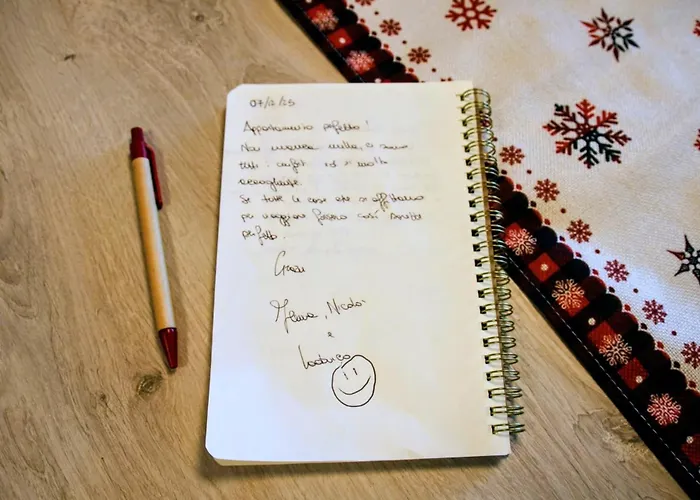 07/12/25
Appartamento perfetto!
Non manca nulla, ci sono
tutti i confort ed è molto
accogliente.
Se tutte le case che si affittano
per viaggiare fossero così sarebbe
perfetto.
Grazie
Nicolò
e
Lodovico